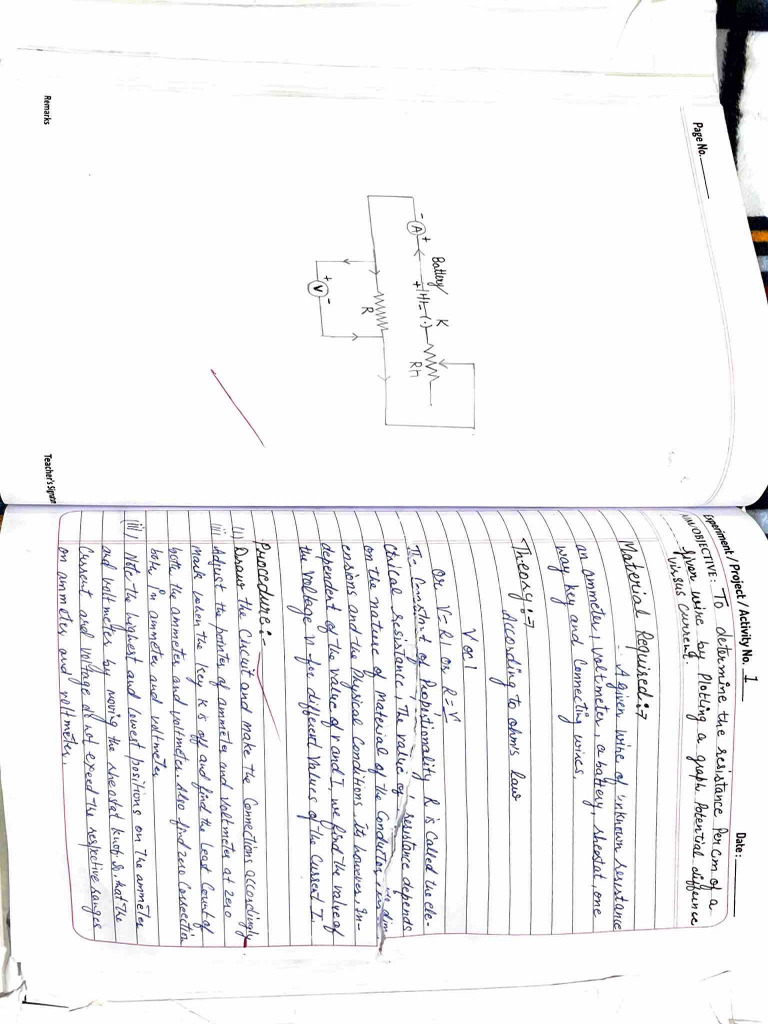 Page No.
Battery
K
+ |H|- (·)
Rh
- A +
R
+ V -
Remarks
Teacher's Signatu
Experiment / Project / Activity No. 1
Date:
AIM/OBJECTIVE: To determine the resistance Per cm of a
given wire by Plotting a graph Potential difference
versus current
Material Required:→
A given wire of unknown resistance
an ammeter, voltmeter, a battery, rheostat, one
way key and Connecting wires.
Theory:→
According to ohm's law
V ∝ I
or V = RI or R = V
The Constant of Propotionality R is Called the ele-
Ctrical resistance, The value of resistance depends
on the nature of material of the Conductor, dim
ensions and the Physical Conditions. Its however, in-
dependent of the value of V and I, we find the value of
the voltage V for different values of the Current I.
Procedure:-
(i) Draw the Circuit and make the Connection accordingly
(ii) Adjust the pointer of ammeter and voltmeter at zero
mark when the key K is off and find the Least Count of
both the ammeter and voltmeter. Also find zero Correction
both in ammeter and voltmeter
(iii) Note the highest and lowest positions on the ammeter
and voltmeter by moving the rheostat knob so that the
Current and voltage do not exceed the respective ranges
on ammeter and voltmeter.